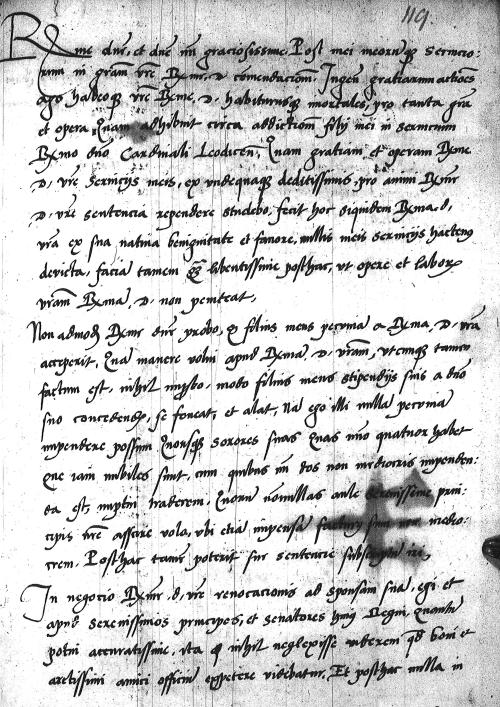 119.
Rme dne, et dne mi graciosissime. Post mei meorumq servicio-
rum in gram vre Rme. d. comendacion. Ingen gratiarum actiões
ago habeoq vre Rme. d. habiturusq mortales, pro tanta gra
et opera, Quam adhibuit circa addictiom filij mei in servicium
Rxmo dno Cardinali Leodicen, Quam gratiam et operam Rxme
d. vre Servicijs meis, ex undequaque deditissimis, pro animi Rxme
d. vre sentencia rependere studebo, fecit hoc siquidem Rxma. d.
vra ex sua nativa benignitate et favore, nullis meis servicijs hactenus
devicta, faciā tamen libentissime posthac, ut opere et labore
vram Rxma. d. non peniteat.
Non admod Rxme dne probo, filius meus pecuniā a Rxma. d. vra
acceperit, Qua manere volui apud Rxma. d. vram, utcunque tamen
factum est, nihil modo filius meus stipendijs suis a dno
suo concedend, se foveat, et alat, Nā ego illi nullā pecuniā
impendere possum Quousq sorores suas Quas uno quatuor habet
Que iam nubiles sunt, cum quibus mi dos non mediocris impenden-
da est, traderem. Quoru nonullas aule Serenissime prin-
cipis vre asserere volo, ubi etiā impensā facturus sum non medio-
crem. Posthac tamen poterit sue sentencie
In negocio Rxme. d. vre renovacionis ad sponsam suā, egi et
apud serenissimos principes, et senatores huius Regni, Quantū
potui accuratissime, ita nihil neglexisse viderem qd boni et
arctissimi amici officiū expetere videbatur. Et posthac nulla in